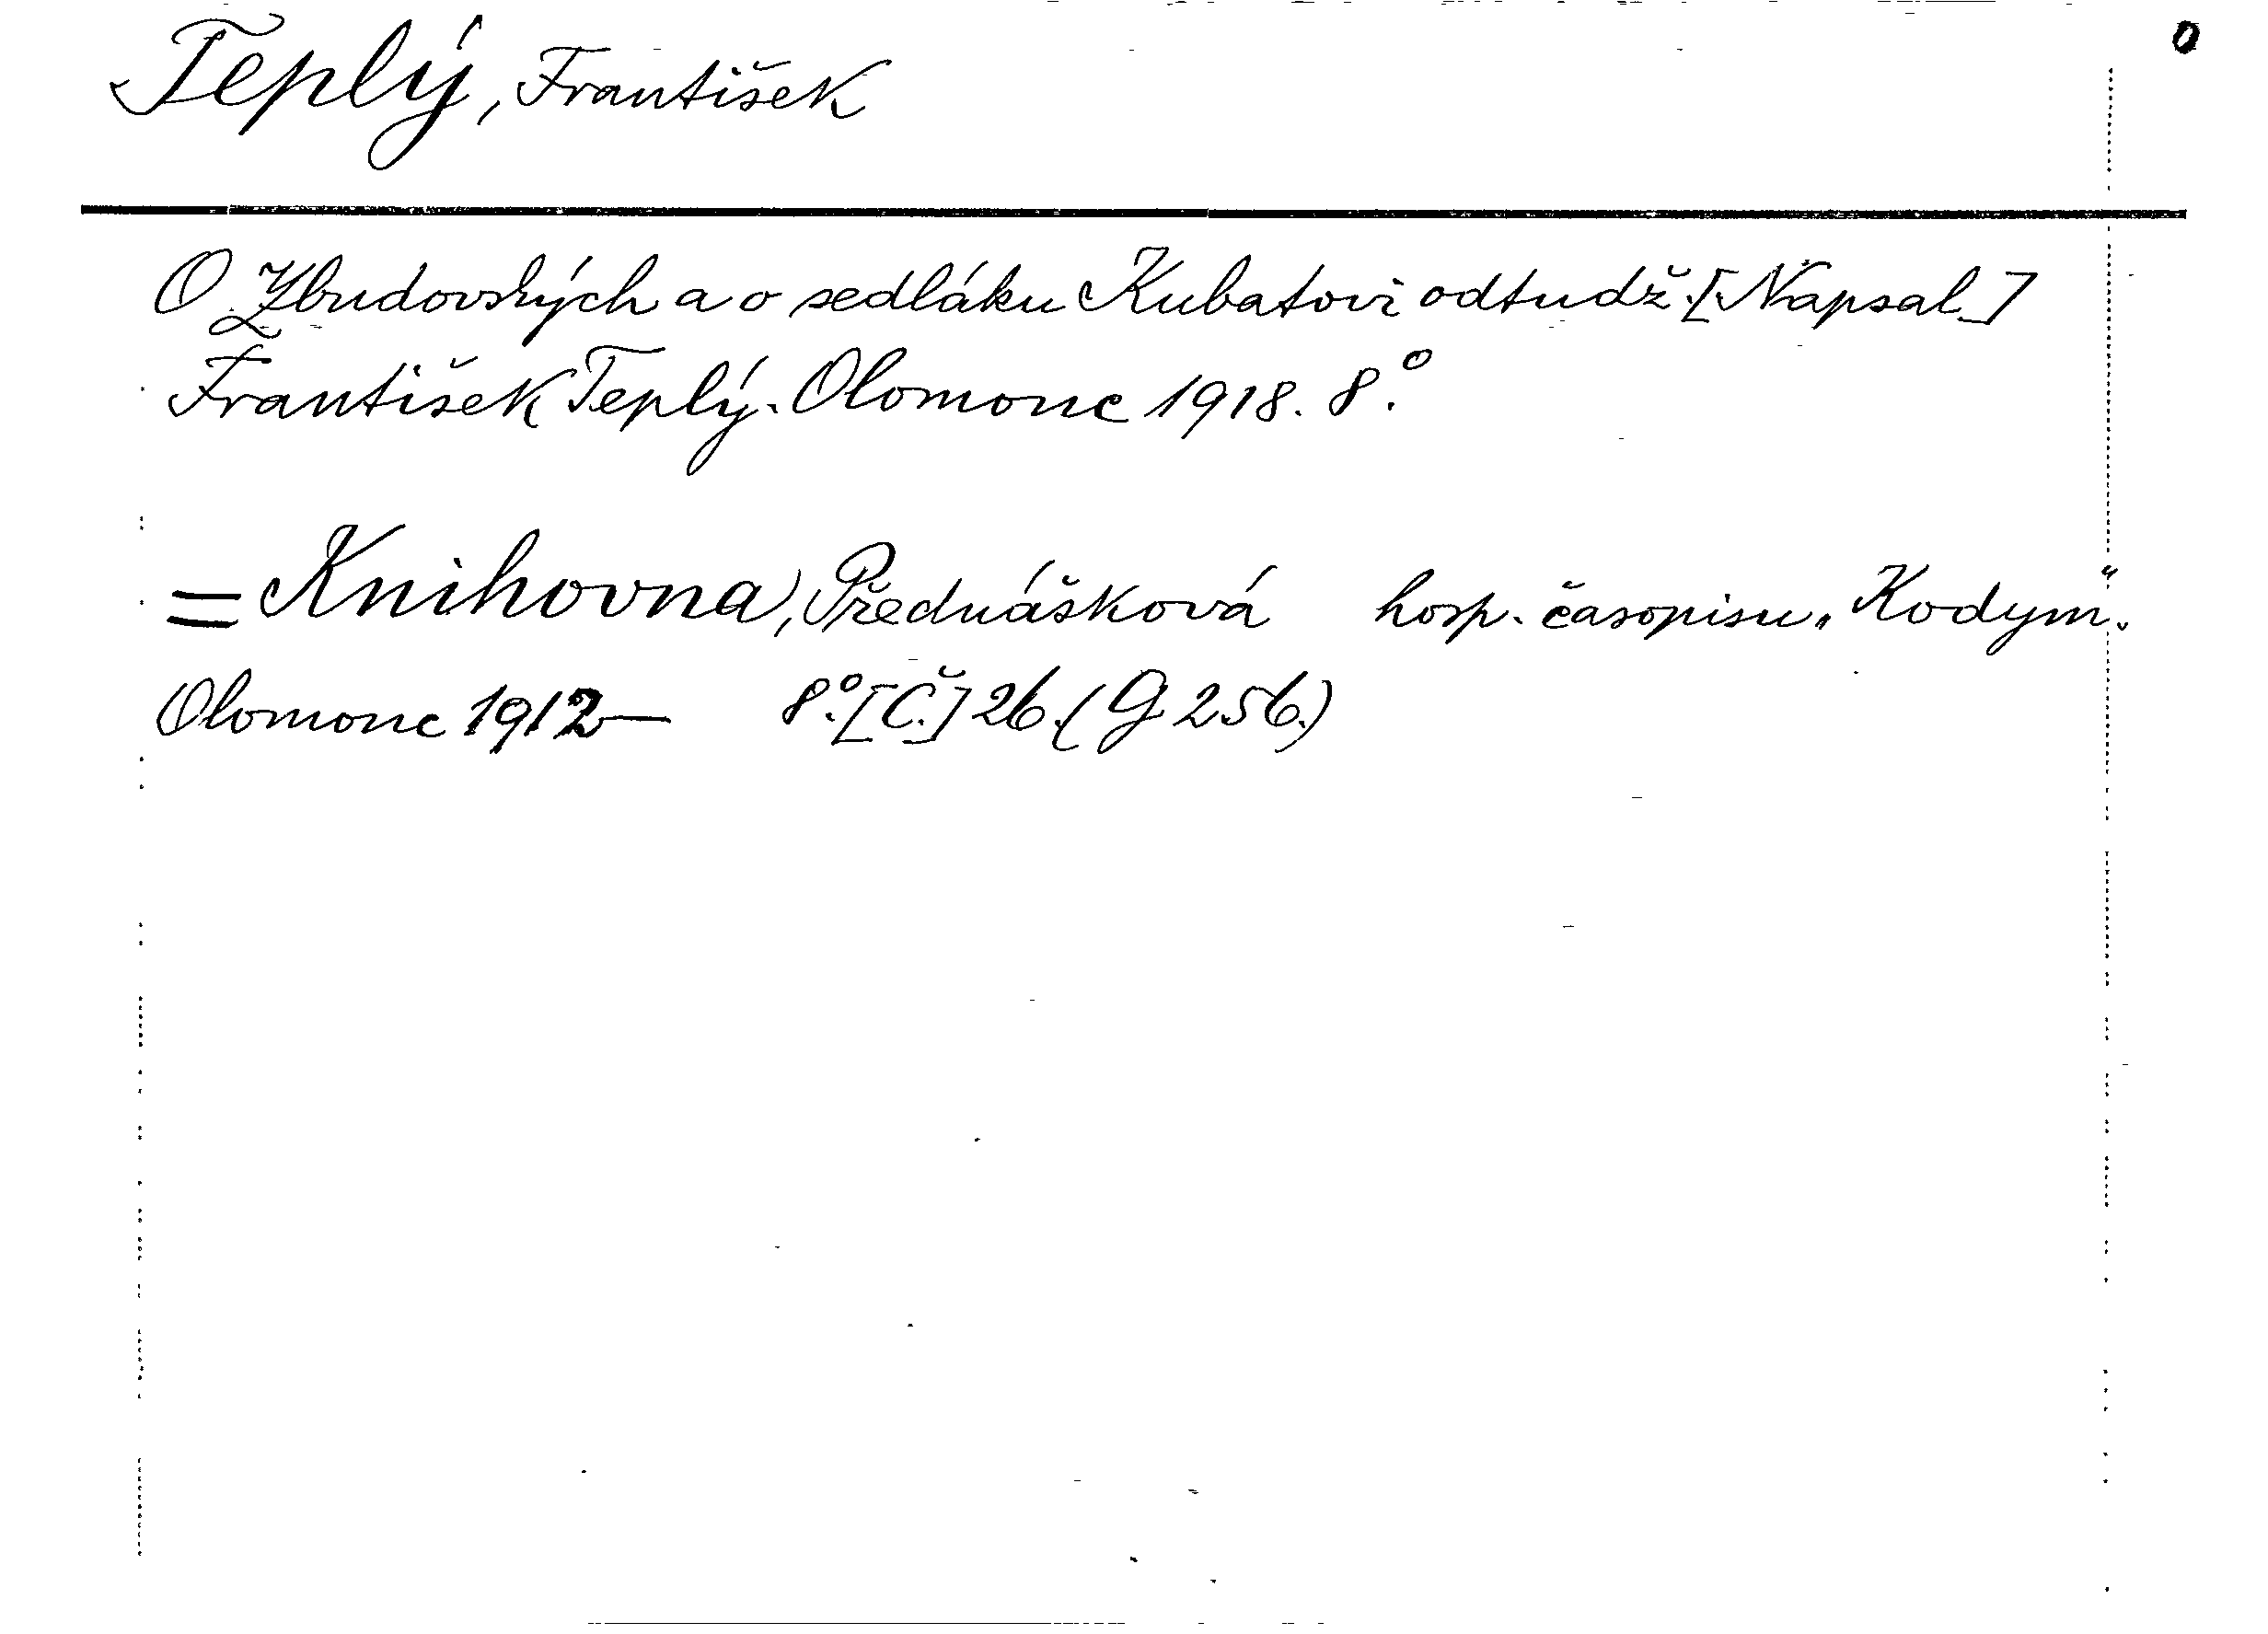 0
Teplý, František
O Zbudovských a o sedláku Kubatovi odtudž. [Napsal]
František Teplý. Olomouc 1918. 8.°
= Knihovna, Přednášková hosp. časopisu „Kodym“.
Olomouc 1912— 8.° [Č.] 26. (G 256.)